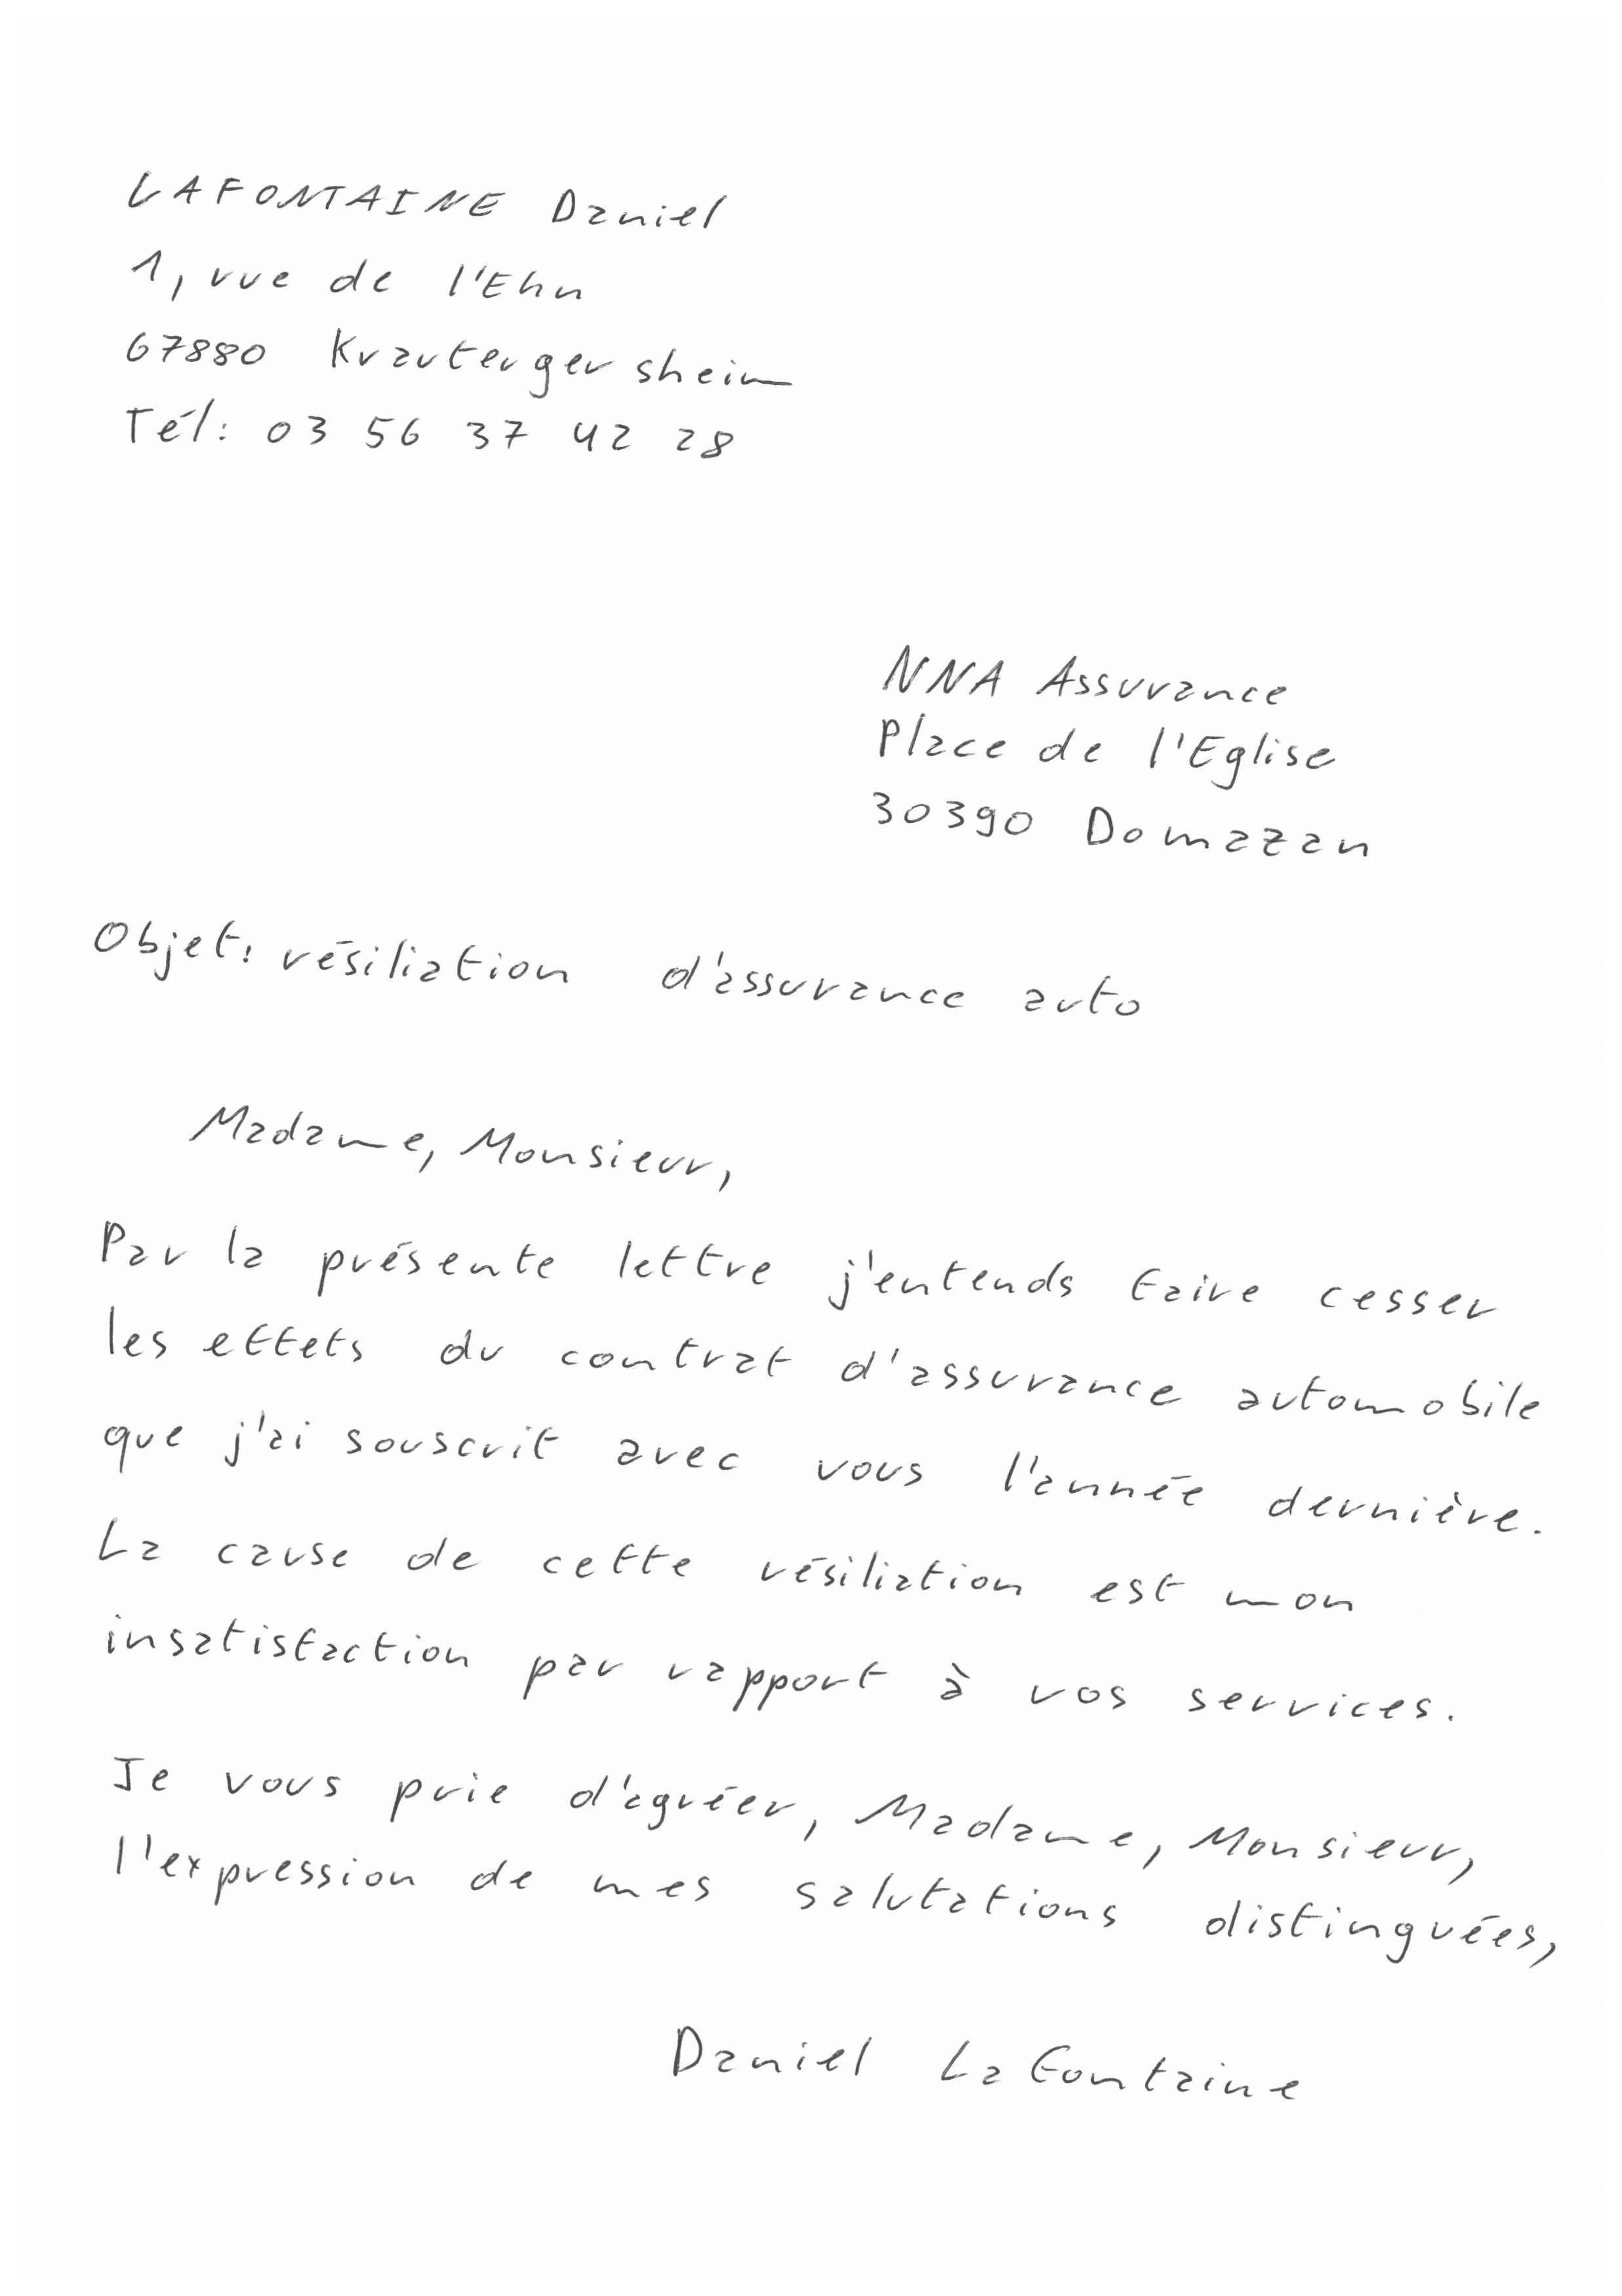 LAFONTAINE Daniel
1, rue de l'Ehn
67880 Krautergersheim
Tél: 03 56 37 42 28
NNA Assurance
Place de l'Eglise
30390 Domazan
Objet: résiliation d'assurance auto
Madame, Monsieur,
Par la présente lettre j'entends faire cesser
les effets du contrat d'assurance automobile
que j'ai souscrit avec vous l'année dernière.
La cause de cette résiliation est mon
insatisfaction par rapport à vos services.
Je vous prie d'agréer, Madame, Monsieur,
l'expression de mes salutations distinguées,
Daniel Lafontaine